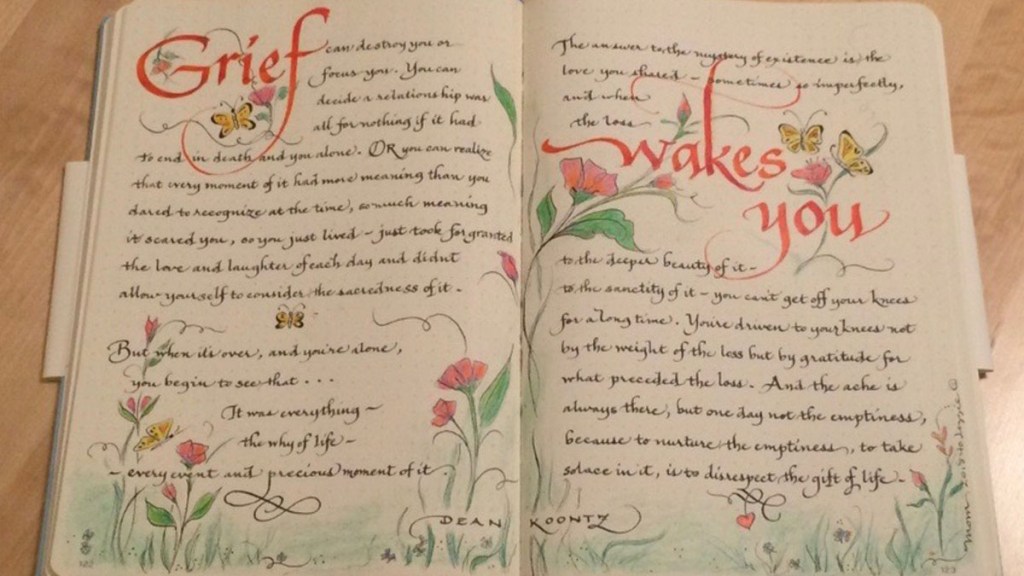 Grief can destroy you or
focus you. You can
decide a relationship was
all for nothing if it had
to end in death and you alone. OR you can realize
that every moment of it had more meaning than you
dared to recognize at the time, so much meaning
it scared you, so you just lived – just took for granted
the love and laughter of each day and didn't
allow yourself to consider the sacredness of it.
But when it's over, and you're alone,
you begin to see that ...
It was everything ~
the why of life ~
– every event and precious moment of it.
DEAN KOONTZ
The answer to the mystery of existence is the
love you shared – sometimes so imperfectly,
and when
the loss
wakes
you
to the deeper beauty of it –
to the sanctity of it – you can't get off your knees
for a long time. You're driven to your knees not
by the weight of the loss but by gratitude for
what preceded the loss. And the ache is
always there, but one day not the emptiness,
because to nurture the emptiness, to take
solace in it, is to disrespect the gift of life.